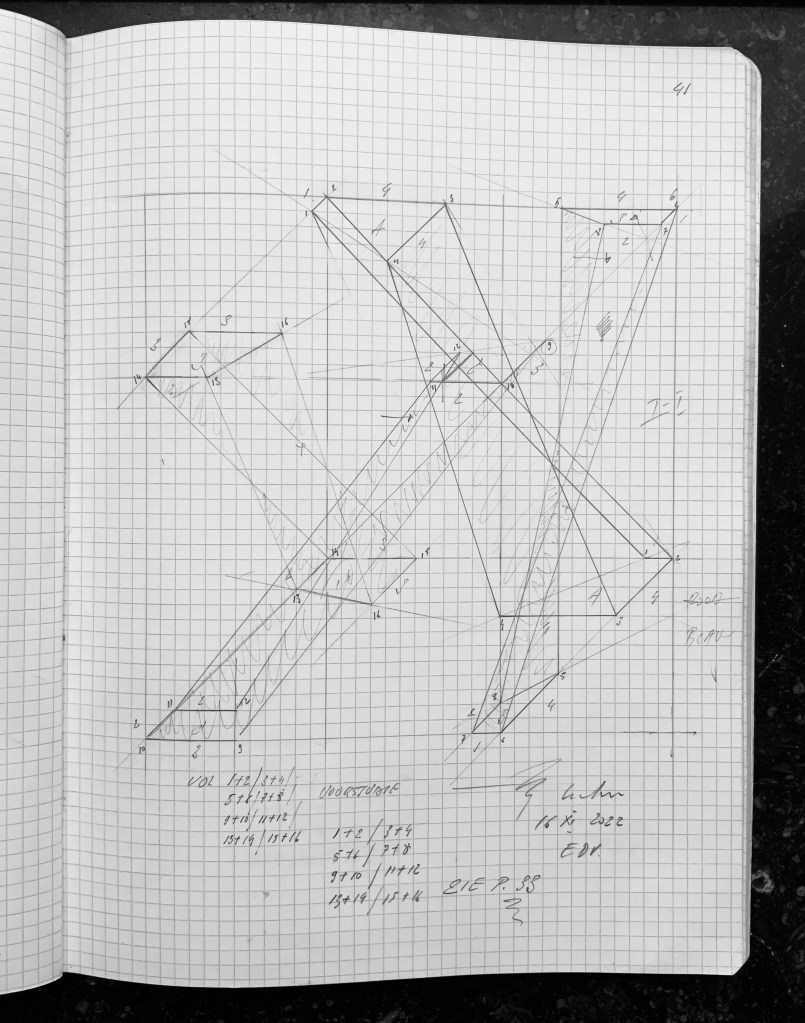 41
1
2
4
3
5
4
6
1
A
4
8
7
2
4
6
15
3
16
12
9
5
3
14
13
11
10
2
I-I
14
15
1
2
5
13
16
5
A
4
4
3
4
ROOD
BLAU
5
8
4
11
12
7
6
10
2
9
VOL 1+2/3+4/
5+6/7+8/
9+10/11+12/
13+14/15+16
VOORSTUDIE
1+2/3+4
5+6/7+8
9+10/11+12
13+14/15+16
16 XI 2022
EDV.
ZIE P. 33